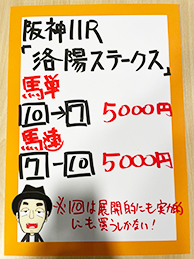 阪神11R
「洛陽ステークス」
馬単
10→7 5000円
馬連
7-10 5000円
※10は展開的にも実力的
にも買うしかない!